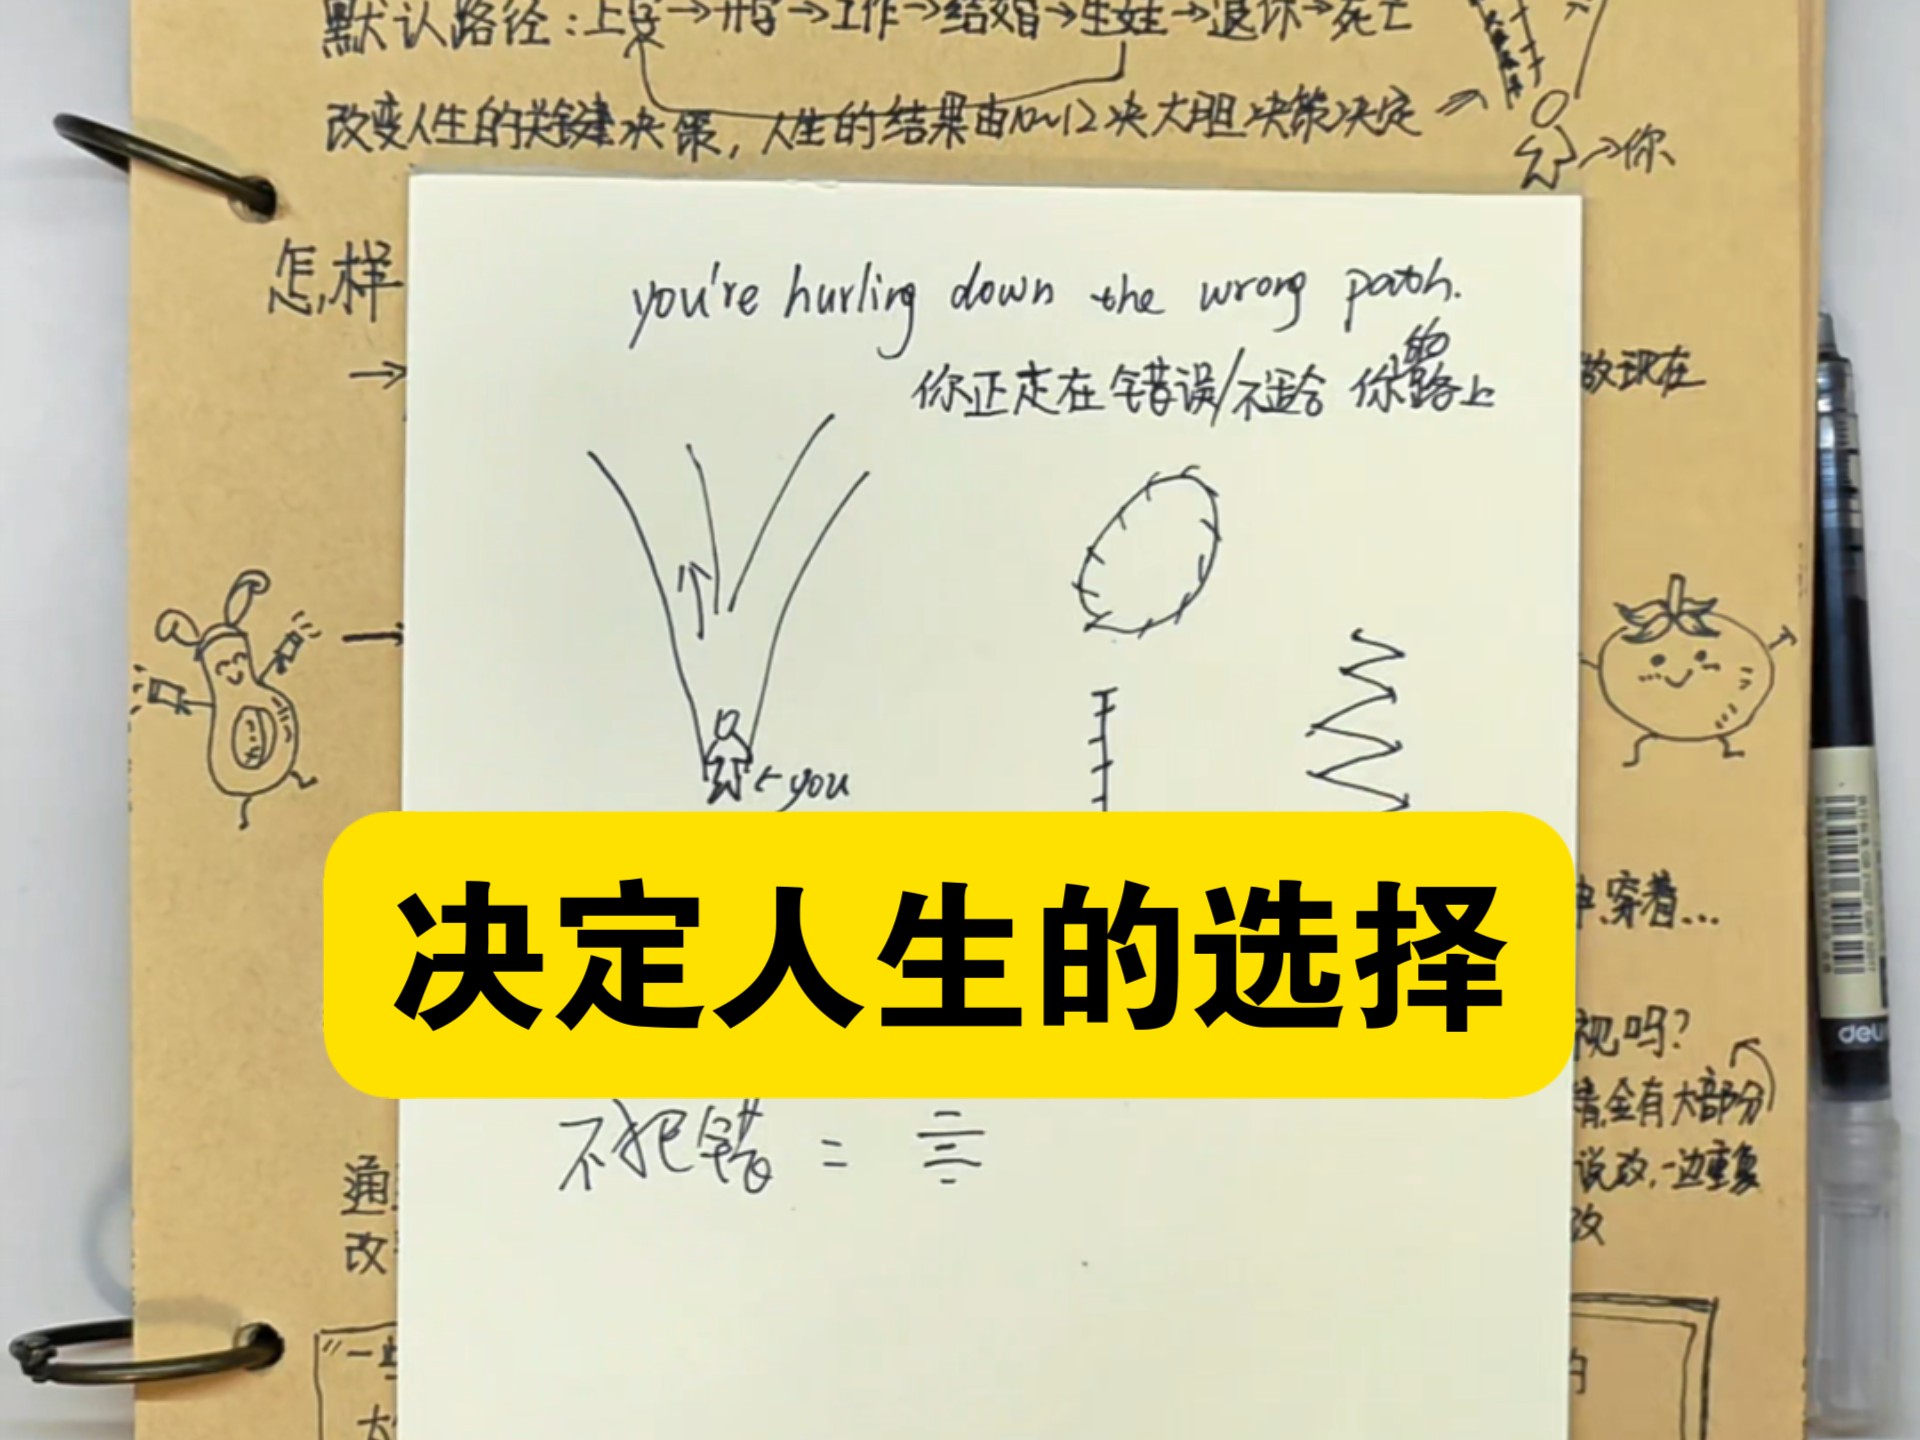 默认路径：上学→升学→工作→结婚→生娃→退休→死亡
改变人生的关键决策，人生的结果由10~12决大胆决策决定
→你
怎样
you're hurling down the wrong path.
你正走在错误/不适合你的路上
→
现在
→
←you
决定人生的选择
穿着...
视吗?
有大部分
不把错 = 三
通
说改,一边重复
改
改
"一些
deli